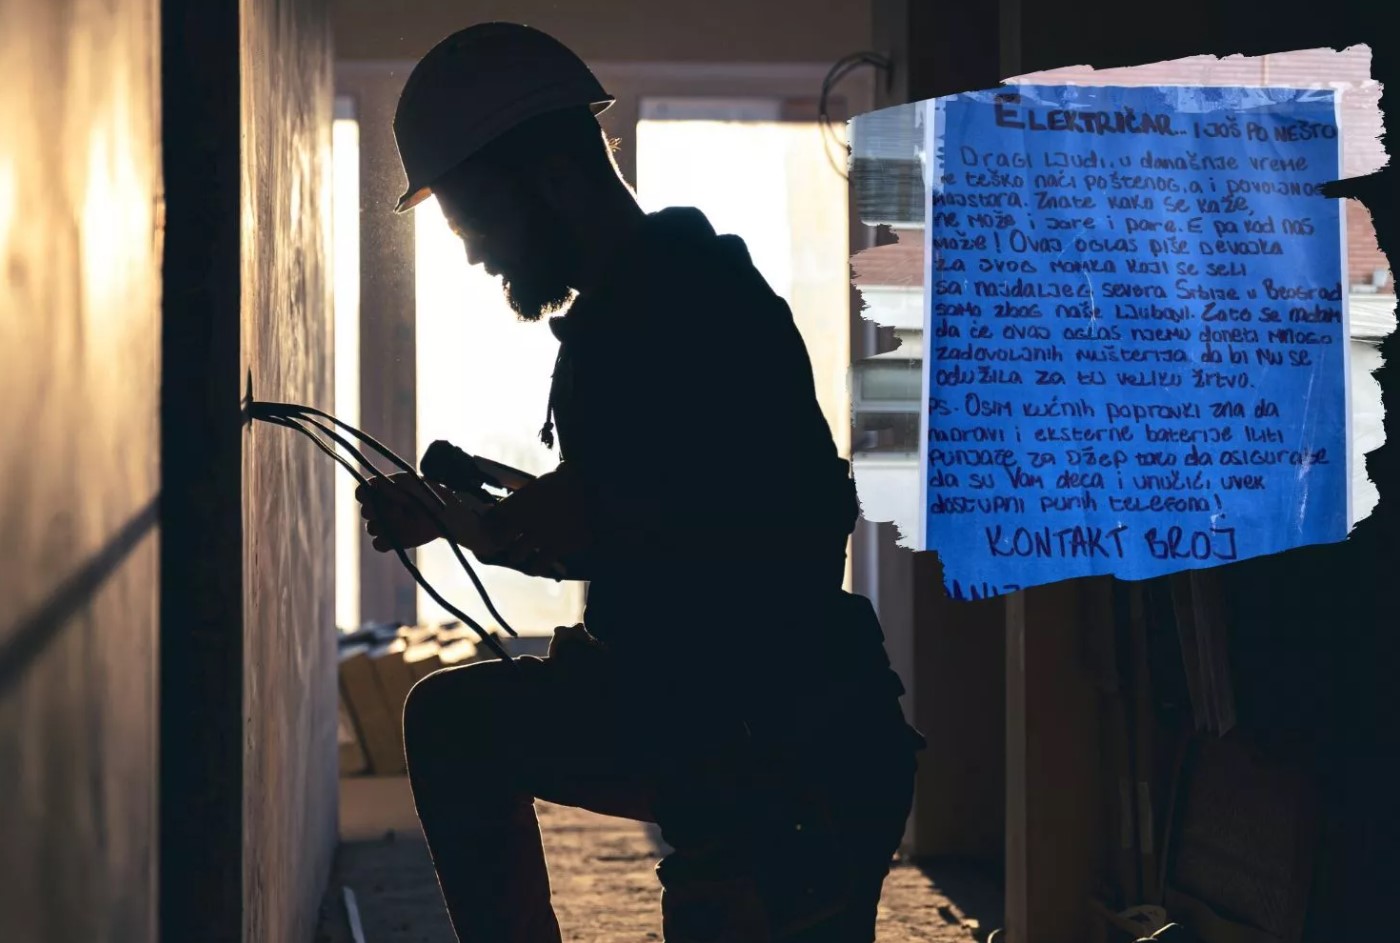 ELEKTRIČAR.. I JOŠ PO NEŠTO
Dragi ljudi, u današnje vreme
je teško naći poštenog, a i povoljnog
majstora. Znate kako se kaže,
ne može i jare i pare. E pa kod nas
može! Ovaj oglas piše devojka
za svog momka koji se seli
sa najdaljeg severa Srbije u Beograd
samo zbog naše ljubavi. Zato se nadam
da će ovaj oglas njemu doneti mnogo
zadovoljnih mušterija da bi mu se
odužila za tu veliku žrtvu.
PS. Osim kućnih popravki zna da
napravi i eksterne baterije iliti
punjače za džep tako da osigurate
da su Vam deca i unučići uvek
dostupni punih telefona!
KONTAKT BROJ